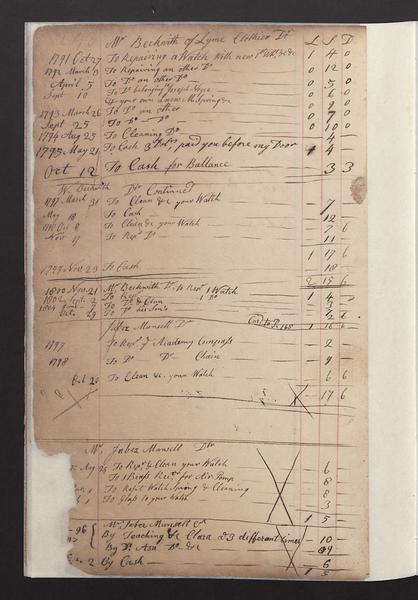 Mr Beckwith of Lyme Clothier Dr L S D
1791 Oct 27 To Repairing a Watch with new 1 4 0
1792 March 3 To Repairing an other Do 0 12 0
April 5 To Do an other Do 0 5 0
Sept 10 To Do belonging Joseph Noyes 0 6 0
& your own a new MnSpring &c 0 9 0
1793 March 26 To Do an other 0 7 0
Sept 25 To Do Do 0 10 0
1794 Aug 25 To Cleaning Do 4
1795 May 21 To Cash 3 paid you before my Door 1 4
Oct 12 To Cash for Ballance 3 3
W. Beckwith Dr Continued
1797 March 31 To Clean &c your Watch 7
May 18 To Cash 12
Oct 8 To Clean &c your Watch 7 6
Nov 17 To Repg Do 11
1 17 6
1799 Nov 29 To Cash 18
2 15 6
1800 Nov 21 Mr Beckwith Dr to Repg 1 Watch 1 4
1802 Sept 2 To Repg 1 Do 4
1804 To Do & Clean
Oct 29 To Do
Card to P. 168 1 16 6
Jabez Mansell Dr
1797 To Repg Academy Compass 2
1798 To Do Do Chain 9
Oct 20 To Clean &c. your Watch 6 6
17 6
Mr Jabez Mansell Dr
Aug 25 To Repg & Clean your Watch 6
To 1 Brass for Air Pump 8
To Watch Spring & Cleaning 8
To Glass to your Watch 3
1 5
Mr Jabez Mansell Cr
96 By Teaching &c Clara &3 different times 10
By Do Asa Do &c 9
2 By Cash 6
1 5